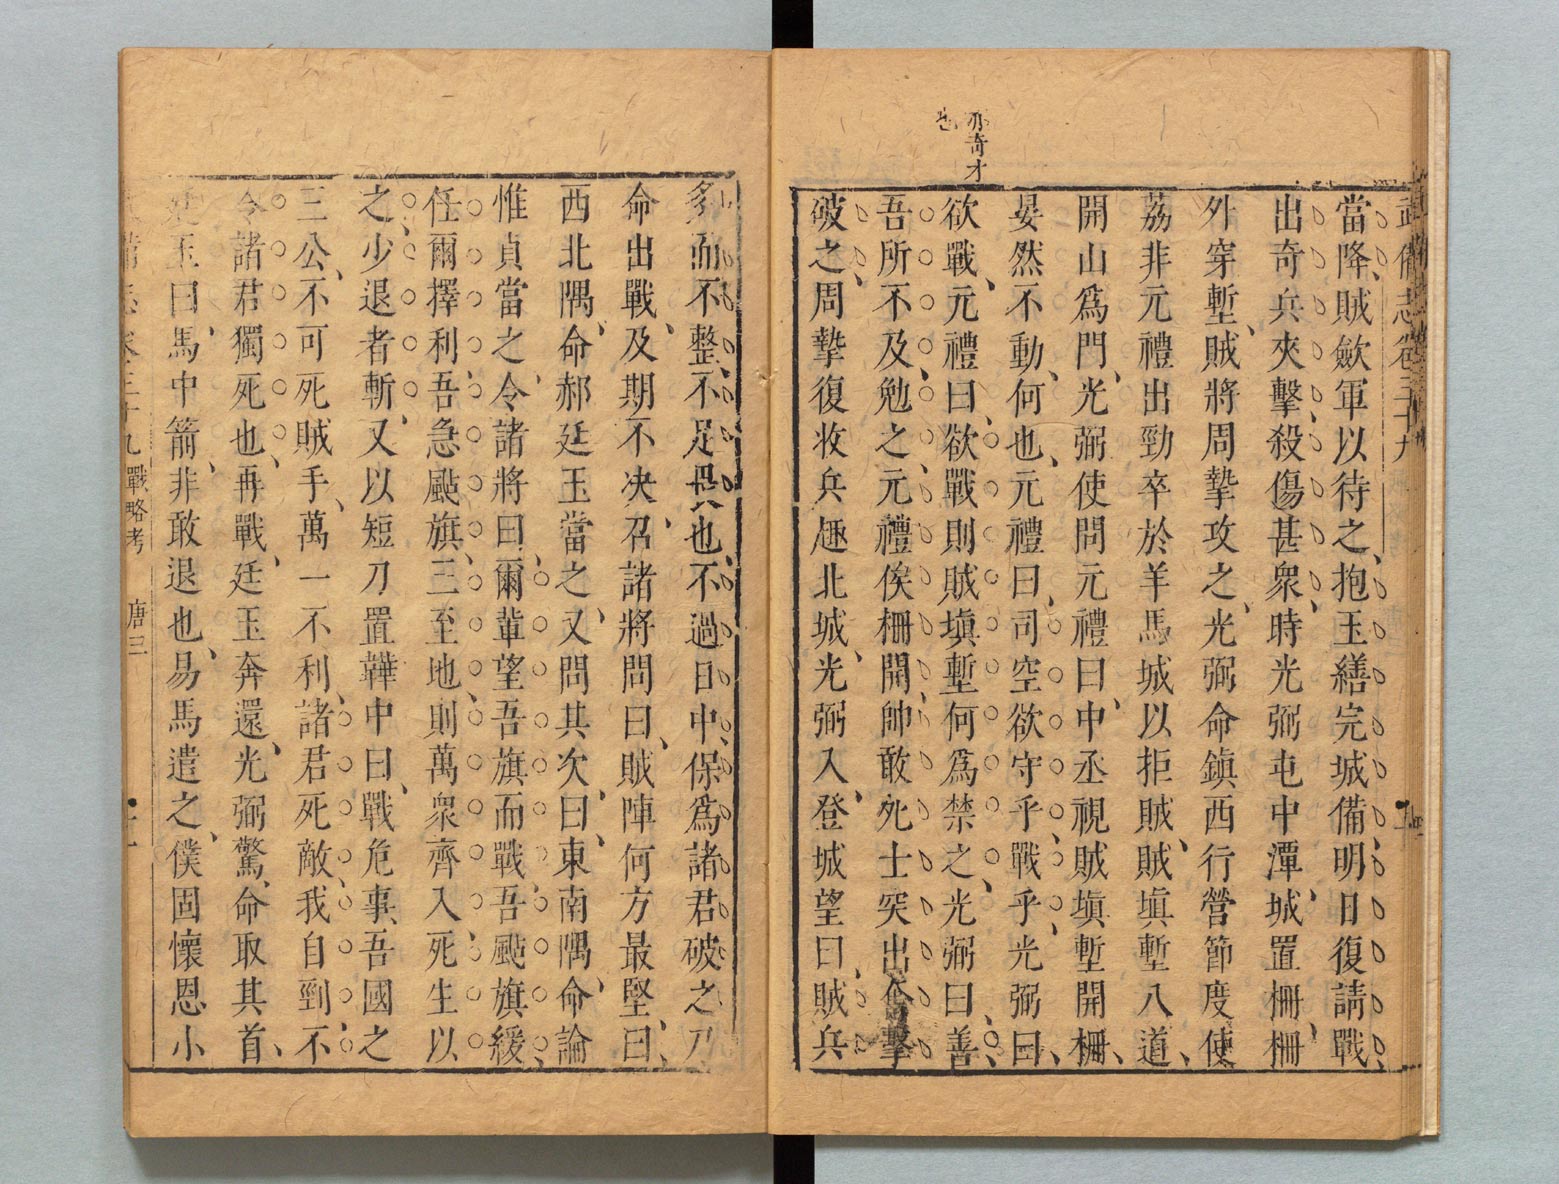 武備志卷三十九
當降、賊歛軍以待之、抱玉繕完城備、明日復請戰、
出奇兵夾擊、殺傷甚衆、時光弼屯中潭城、置柵、柵
外穿塹、賊將周摯攻之、光弼命鎮西行營節度使
荔非元禮出勁卒於羊馬城以拒賊、賊塡塹八道、
開山爲門、光弼使問元禮曰、中丞視賊塡塹開柵、
晏然不動、何也、元禮曰、司空欲守乎、戰乎、光弼曰、
欲戰、元禮曰、欲戰則賊塡塹何爲禁之、光弼曰、善、
亦奇才
也
吾所不及、勉之、元禮俟柵開、帥敢死士突出奮擊
破之、周摯復收兵趣北城、光弼入、登城望曰、賊兵
多而不整、不足畏也、不過日中、保爲諸君破之乃
命出戰、及期不决、召諸將問曰、賊陣何方最堅、曰、
西北隅、命郝廷玉當之、又問其次、曰、東南隅、命論
惟貞當之、令諸將曰、爾輩望吾旗而戰、吾颭旗緩、
任爾擇利、吾急颭旗、三至地、則萬衆齊入、死生以
之、少退者斬、又以短刀置鞾中曰、戰危事、吾國之
三公、不可死賊手、萬一不利、諸君死敵、我自剄、不
令諸君獨死也、再戰、廷玉奔還、光弼驚、命取其首、
廷玉曰、馬中箭、非敢退也、易馬遣之、僕固懷恩小
武備志卷三十九 戰略考 唐三